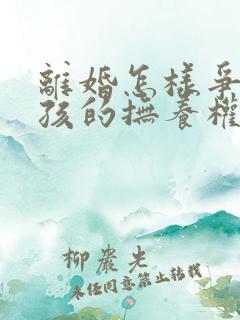 離婚怎樣爭
孩的撫養權
柳巖光
未经同意禁止转载